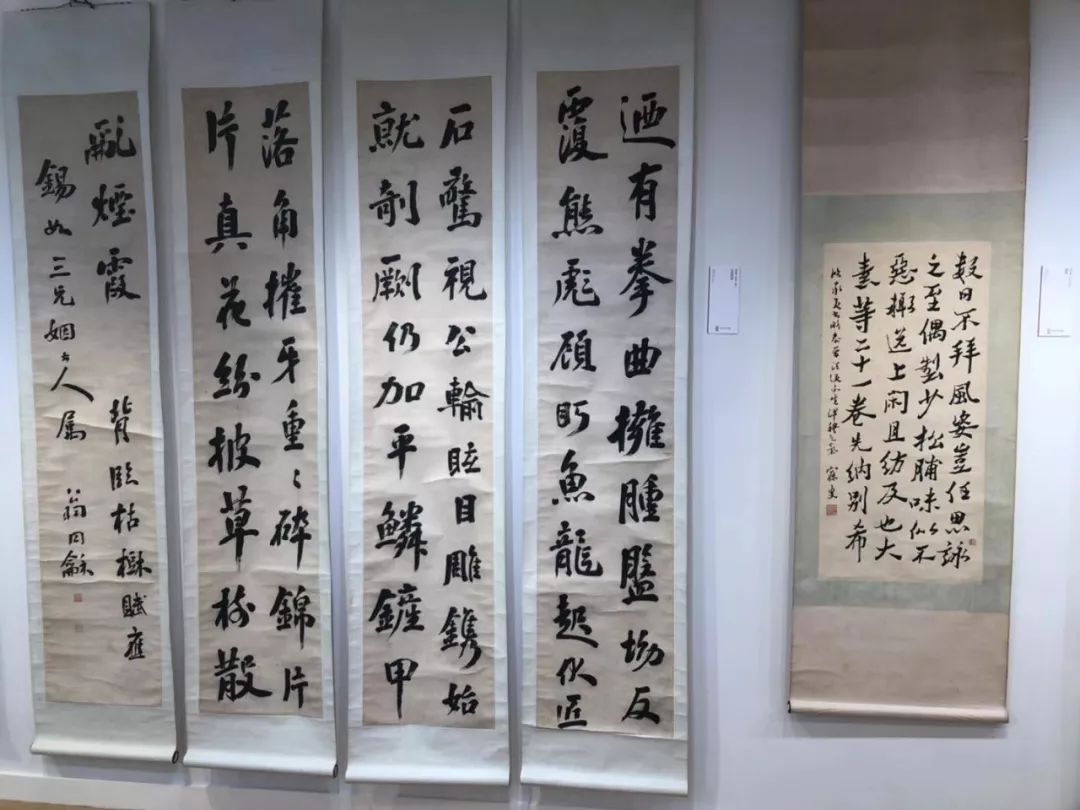 數日不拜風姿豈任思詠
之至偶製少松脯味似不
惡輒送上閑且紡及也大
素等二十一卷先納別希
迺有拳曲擁腫盤坳反
覆熊彪顧盼魚龍起伏匠
石驚視公輸眩目雕鐫始
就剞劂仍加平鱗鏟甲
落角摧牙重〻碎錦片
片真花紛披草樹散
亂煙霞
背臨枯樹賦應
錫如三兄姻大人属
翁同龢